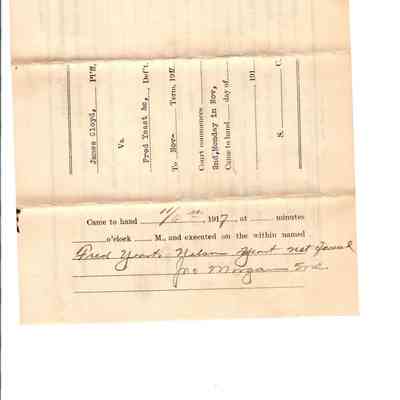 James Cloyd, Pl'ff.
Vs.
Fred Yeast &c, Def't.
To Nov- Term, 191
Court commences
2nd, Monday in Nov,
Came to hand day of
191
S. C.
Came to hand 11/6 1917, at minutes
o'clock M., and executed on the within named
Fred Yeast Nelson Yeast not found
Morgan